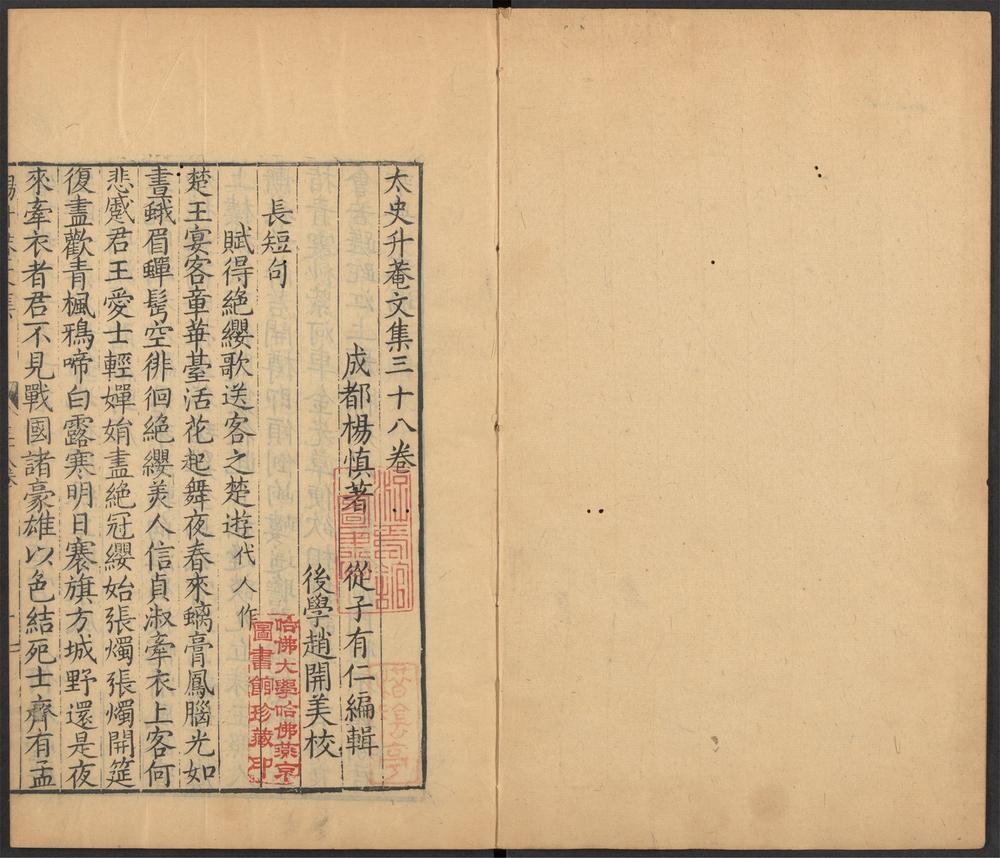 太史升菴文集三十八卷
成都楊慎著 從子有仁編輯
後學趙開美校
長短句
賦得絶纓歌送客之楚遊代人作
楚王宴客章華臺活花起舞夜春來螭膏鳳腦光如
晝蛾眉蟬髩空徘徊絶纓美人信貞淑牽衣上客何
悲慼君王愛士輕嬋娟盡絶冠纓始張燭張燭開筵
復盡歡青楓鴉啼白露寒明日褰旗方城野還是夜
來牽衣者君不見戰國諸豪雄以色結死士齊有孟
哈佛大學哈佛燕京
圖書館珍藏印